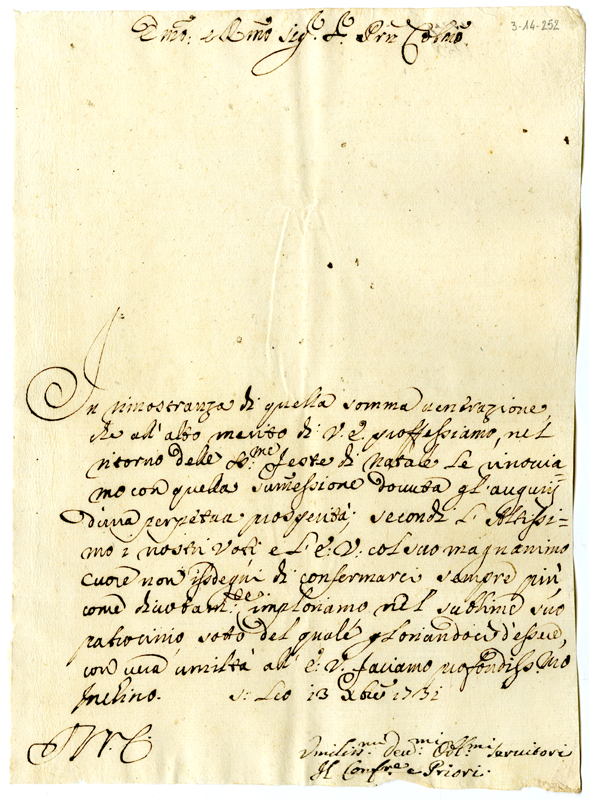 Emo: e Rmo Sigr. Sr. Prn Colmo.
3-14-252
In rimostranza di quella somma venerazione,
che all'alto merito di V. E. proffessiamo, nel
ritorno delle SS.me Feste di Natale Le rinovia=
mo con quella sumessione dovuta gl'augurij
d'una perpetua prosperità; secondi L'Altissi=
mo i nostri Voti e L'E: V: col suo magnanimo
cuore non isdegni di confermarci sempre più
come divotam.te imploriamo nel sublime suo
patrocinio sotto del quale gloriandoci d'essere,
con vera umiltà all'E: V: facciamo profondiss.mo
Inchino. S: Leo 13 Xbre 1731
Umiliss.mi Dev.mi Obl.mi Servitori
Il Confre. e Priori.